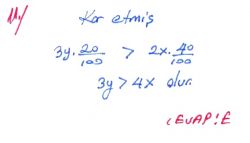 11/ Kar etmiş
3y · 20/100 > 2x · 40/100
3y > 4x olur.
CEVAP: E